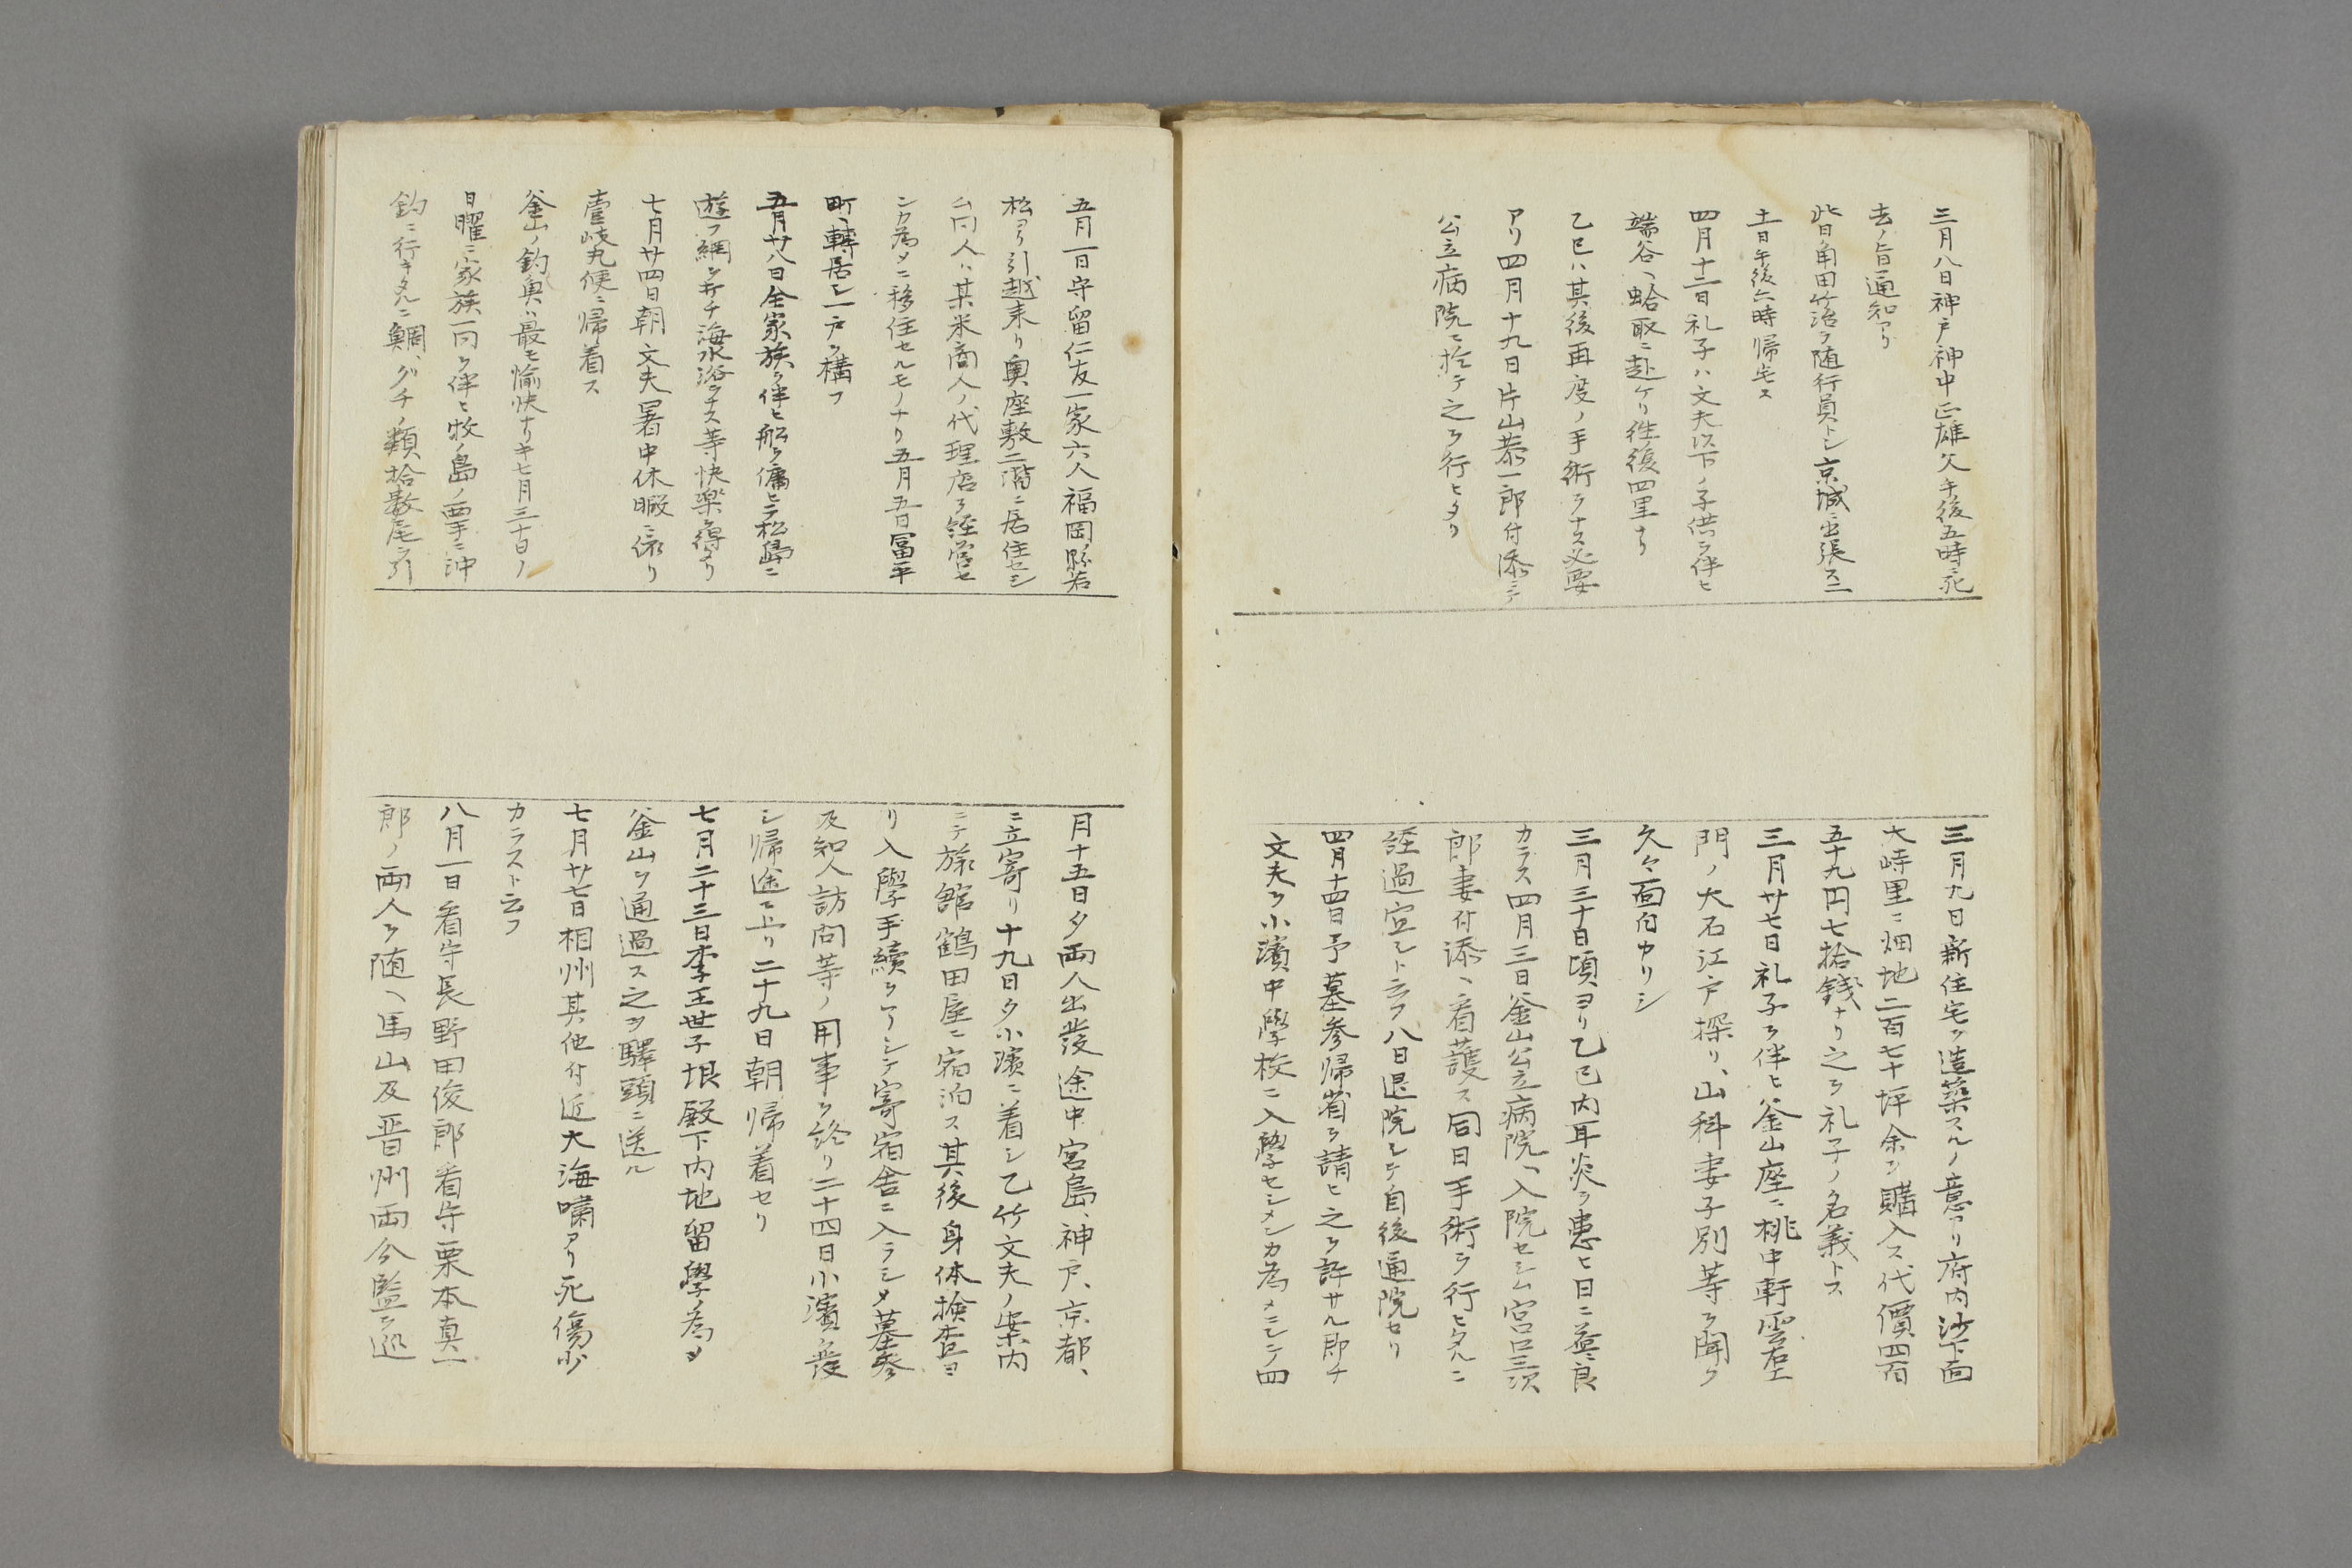 三月八日神戸神中正雄父午後五時ニ死
去ノ旨通知アリ
此日角田竹治ヲ随行員トシ京城ニ出張ス二
十一日午後六時帰宅ス
四月十二日礼子ハ文夫以下ノ子供ヲ伴ヒ
端谷ヘ蛤取ニ赴ケリ往復四里ナリ
乙巳ハ其後再度ノ手術ヲナス必要
アリ四月十九日片山恭一郎付添ニテ
公立病院ニ於テ之ヲ行ヒタリ
三月九日新住宅ヲ造築スルノ意アリ府内沙下面
大峙里ニ畑地二百七十坪余ヲ購入ス代價四百
五十九円七拾銭ナリ之ヲ礼子ノ名義トス
三月廿七日礼子ヲ伴ヒ釜山座ニ桃中軒雲右エ
門ノ大石江戸探リ、山科妻子別等ヲ聞ク
久々面白カリシ
三月三十日頃ヨリ乙巳内耳炎ヲ患ヒ日ニ益良
カラス四月三日釜山公立病院ヘ入院セシム宮口三次
郎妻付添ヘ看護ス同日手術ヲ行ヒタルニ
経過宜シト云フ八日退院シテ自後通院セリ
四月十四日予墓参帰省ヲ請ヒ之ヲ許サル即チ
文夫ヲ小濱中學校ニ入學セシメンカ為メニシテ四
五月一日守留仁友一家六人福岡縣若
松ヨリ引越来リ奥座敷二階ニ居住セシ
ム同人ハ某米商人ノ代理店ヲ経営セ
ンカ為メニ移住セルモノナリ五月五日冨平
町ヘ轉居シ一戸ヲ構フ
五月廿八日全家族ヲ伴ヒ船ヲ傭ヒテ松島ニ
遊フ網ヲ牽キ海水浴ヲナス等快楽ヲ得タリ
七月廿四日朝文夫暑中休暇ニ係リ
壹岐丸便ニ帰着ス
釜山ノ釣奥ハ最モ愉快ナリキ七月三十日ノ
日曜ニ家族一同ヲ伴ヒ牧ノ島ノ西手ニ沖
釣ニ行キタルニ鯛、グチノ類拾数尾ヲ引
月十五日夕両人出發途中宮島、神戸、京都、
ニ立寄リ十九日夕小濱ニ着シ乙竹文夫ノ案内
ニテ旅舘鶴田屋ニ宿泊ス其後身体検査ヨ
リ入學手續ヲ了シテ寄宿舎ニ入ラシメ墓参
及知人訪問等ノ用事ヲ終リ二十四日小濱ヲ發
シ帰途ニ上リ二十九日朝帰着セリ
七月二十三日李王世子垠殿下内地留學ノ為メ
釜山ヲ通過ス之ヲ驛頭ニ送ル
七月廿七日相州其他付近大海嘯アリ死傷少
カラスト云フ
八月一日看守長野田俊郎看守栗本真一
郎ノ両人ヲ随ヘ馬山及晋州両分監ヲ巡